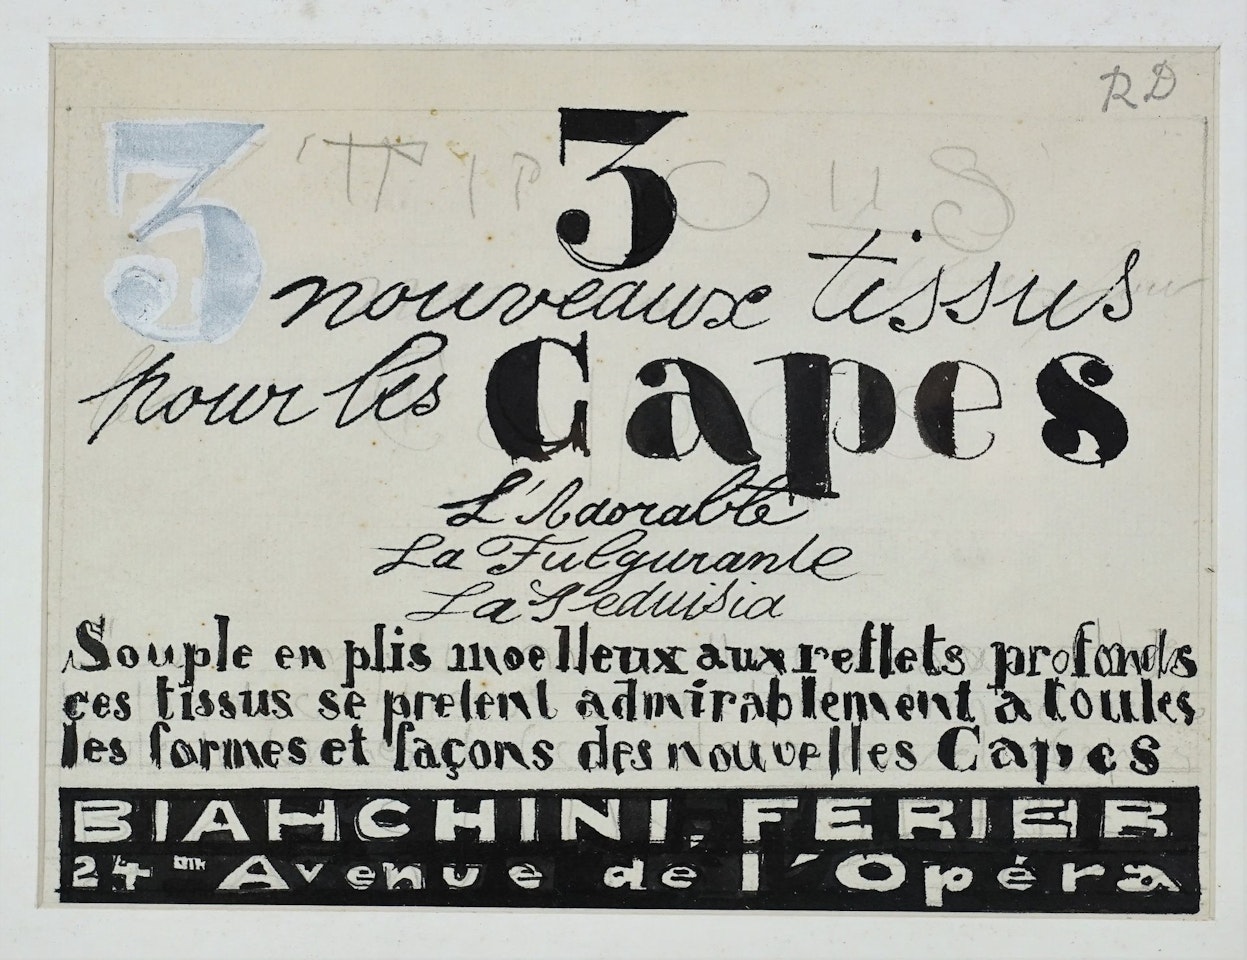 RD
3 3
nouveaux tissus
pour les Capes
L'Adorable
La Fulgurante
La Seduisia
Souple en plis moelleux aux reflets profonds
ces tissus se pretent admirablement à toutes
les formes et façons des nouvelles Capes
BIAHCHINI, FERIER
24 bis Avenue de l'Opéra